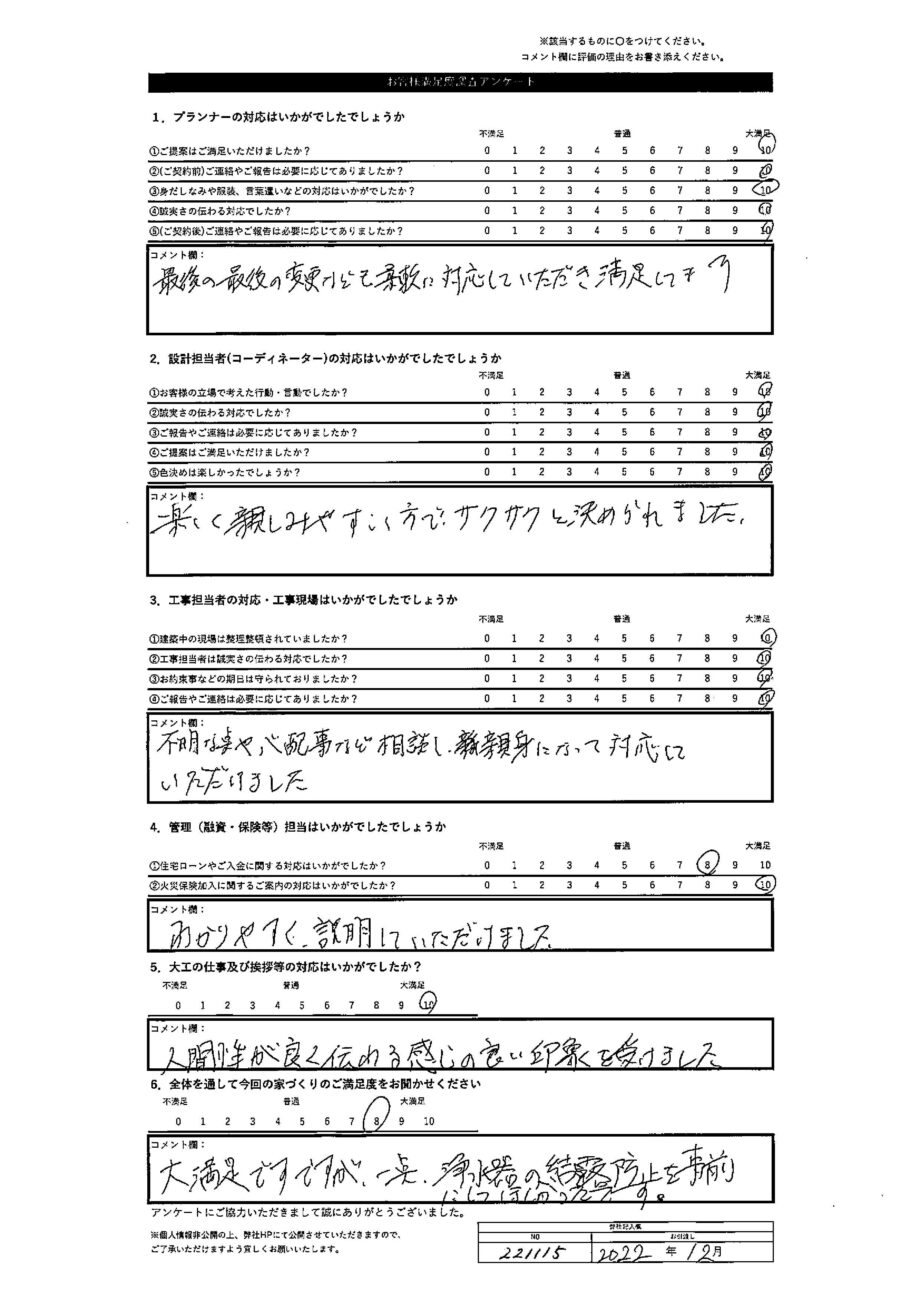 ※該当するものに〇をつけてください。
コメント欄に評価の理由をお書き添えください。
お客様満足度調査アンケート
1．プランナーの対応はいかがでしたでしょうか
不満足 普通 大満足
①ご提案はご満足いただけましたか？ 0 1 2 3 4 5 6 7 8 9 10
②(ご契約前)ご連絡やご報告は必要に応じてありましたか？ 0 1 2 3 4 5 6 7 8 9 10
③身だしなみや服装、言葉遣いなどの対応はいかがでしたか？ 0 1 2 3 4 5 6 7 8 9 10
④誠実さの伝わる対応でしたか？ 0 1 2 3 4 5 6 7 8 9 10
⑤(ご契約後)ご連絡やご報告は必要に応じてありましたか？ 0 1 2 3 4 5 6 7 8 9 10
コメント欄：
最後の最後の変更なども柔軟に対応していただき満足してます
2．設計担当者(コーディネーター)の対応はいかがでしたでしょうか
不満足 普通 大満足
①お客様の立場で考えた行動・言動でしたか？ 0 1 2 3 4 5 6 7 8 9 10
②誠実さの伝わる対応でしたか？ 0 1 2 3 4 5 6 7 8 9 10
③ご報告やご連絡は必要に応じてありましたか？ 0 1 2 3 4 5 6 7 8 9 10
④ご提案はご満足いただけましたか？ 0 1 2 3 4 5 6 7 8 9 10
⑤色決めは楽しかったでしょうか？ 0 1 2 3 4 5 6 7 8 9 10
コメント欄：
楽しく親しみやすい方で、サクサクと決められました。
3．工事担当者の対応・工事現場はいかがでしたでしょうか
不満足 普通 大満足
①建築中の現場は整理整頓されていましたか？ 0 1 2 3 4 5 6 7 8 9 10
②工事担当者は誠実さの伝わる対応でしたか？ 0 1 2 3 4 5 6 7 8 9 10
③お約束事などの期日は守られておりましたか？ 0 1 2 3 4 5 6 7 8 9 10
④ご報告やご連絡は必要に応じてありましたか？ 0 1 2 3 4 5 6 7 8 9 10
コメント欄：
不明な点や心配事など相談し、親身になって対応して
いただけました
4．管理（融資・保険等）担当はいかがでしたでしょうか
不満足 普通 大満足
①住宅ローンやご入金に関する対応はいかがでしたか？ 0 1 2 3 4 5 6 7 8 9 10
②火災保険加入に関するご案内の対応はいかがでしたか？ 0 1 2 3 4 5 6 7 8 9 10
コメント欄：
わかりやすく、説明していただけました
5．大工の仕事及び挨拶等の対応はいかがでしたか？
不満足 普通 大満足
0 1 2 3 4 5 6 7 8 9 10
コメント欄：
人間性が良く伝わる感じの良い印象を受けました
6．全体を通して今回の家づくりのご満足度をお聞かせください
不満足 普通 大満足
0 1 2 3 4 5 6 7 8 9 10
コメント欄：
大満足ですですが、一点、浄水器の結露防止を事前
にしてほしかったです。
アンケートにご協力いただきまして誠にありがとうございました。
※個人情報非公開の上、弊社HPにて公開させていただきますので、
ご了承いただけますよう宜しくお願いいたします。
弊社記入欄
NO お引渡し
221115 2022年12月